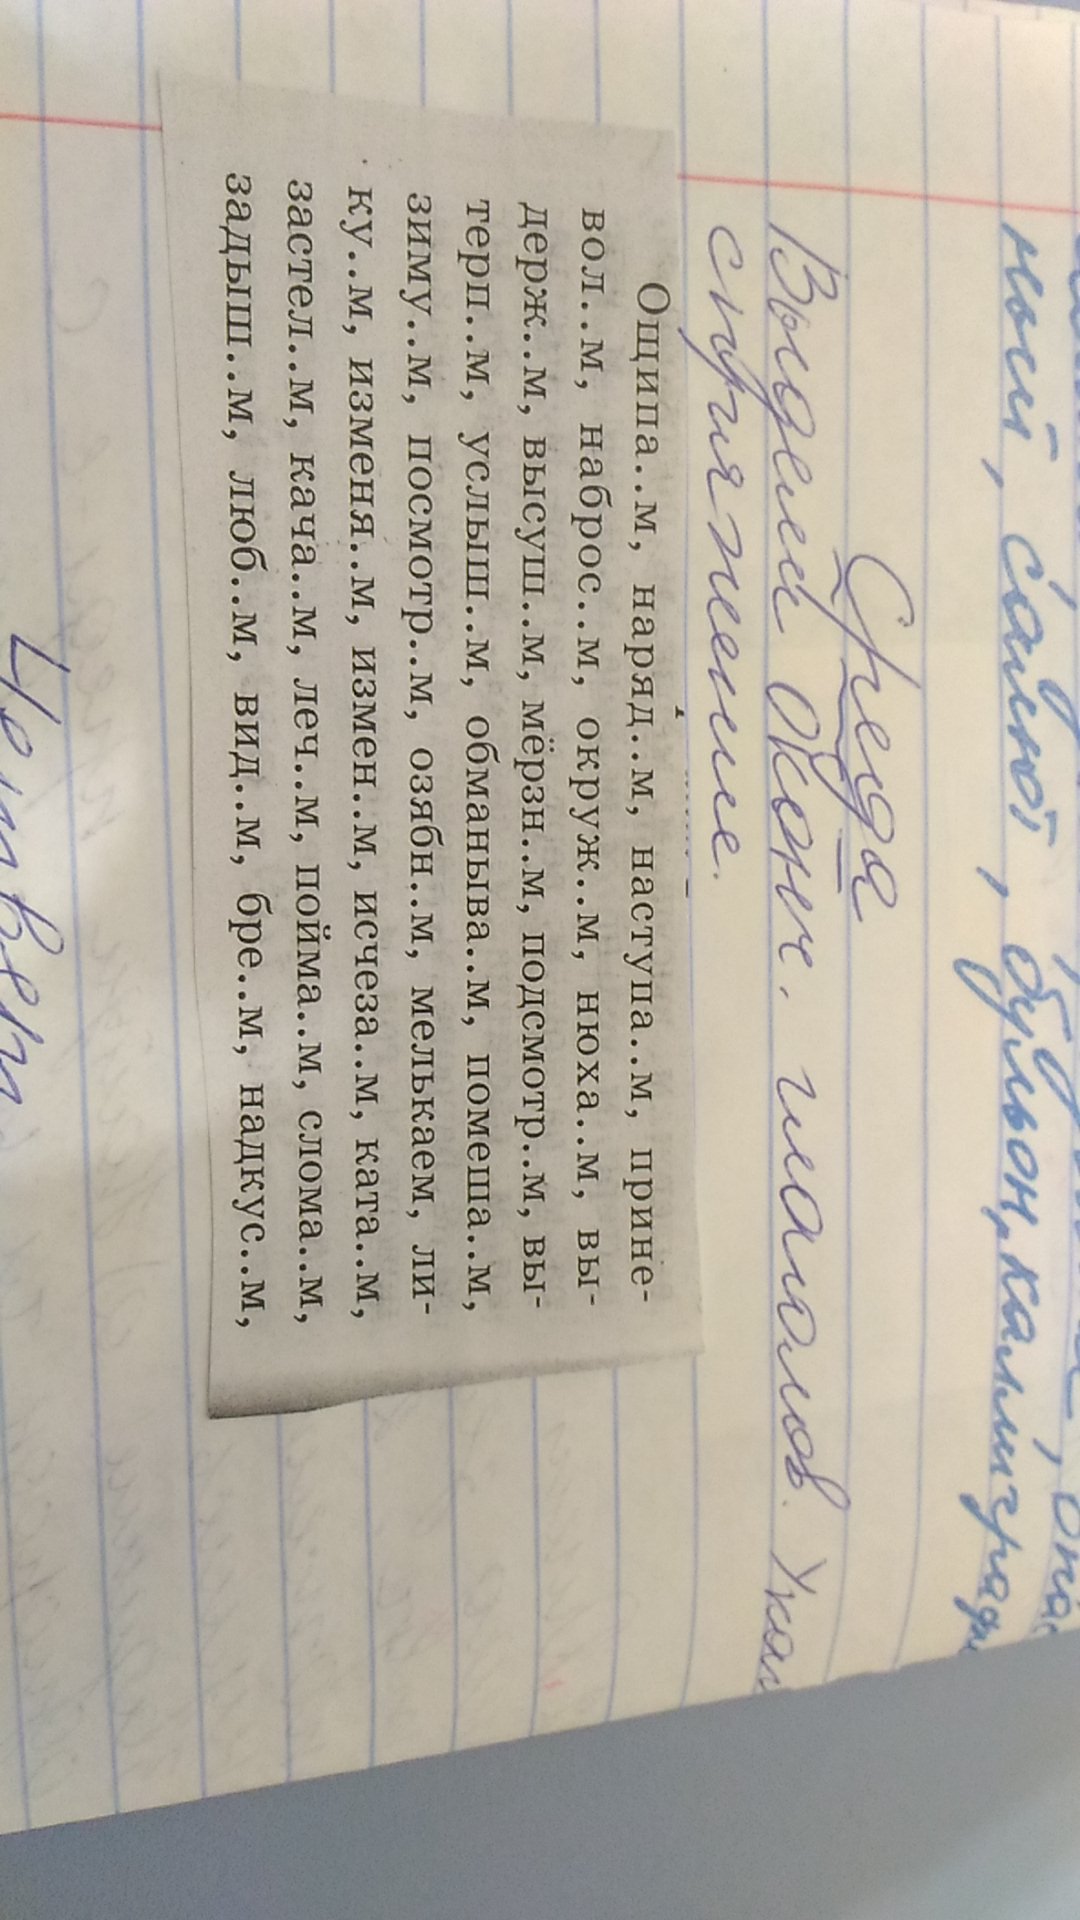 ный, салют, бульон, каллиграф
Среда
Выдели оконч. глаголов. Укаж
спряжение.
Ощипа..м, наряд..м, наступа..м, прине-
вол..м, наброс..м, окруж..м, нюха..м, вы-
держ..м, высуш..м, мёрзн..м, подсмотр..м, вы-
терп..м, услыш..м, обманыва..м, помеша..м,
зиму..м, посмотр..м, озябн..м, мелькаем, ли-
ку..м, изменя..м, измен..м, исчеза..м, ката..м,
застел..м, кача..м, леч..м, пойма..м, слома..м,
задыш..м, люб..м, вид..м, бре..м, надкус..м,
Четверг